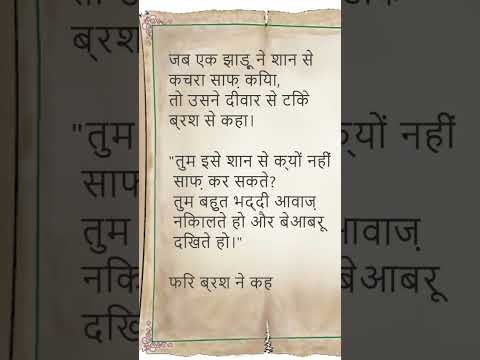 जब एक झाड़ू ने शान से
कचरा साफ़ किया,
तो उसने दीवार से टिके
ब्रश से कहा।
"तुम इसे शान से क्यों नहीं
साफ़ कर सकते?
तुम बहुत भद्दी आवाज़
निकालते हो और बेआबरू
दिखते हो।"
फिर ब्रश ने कह